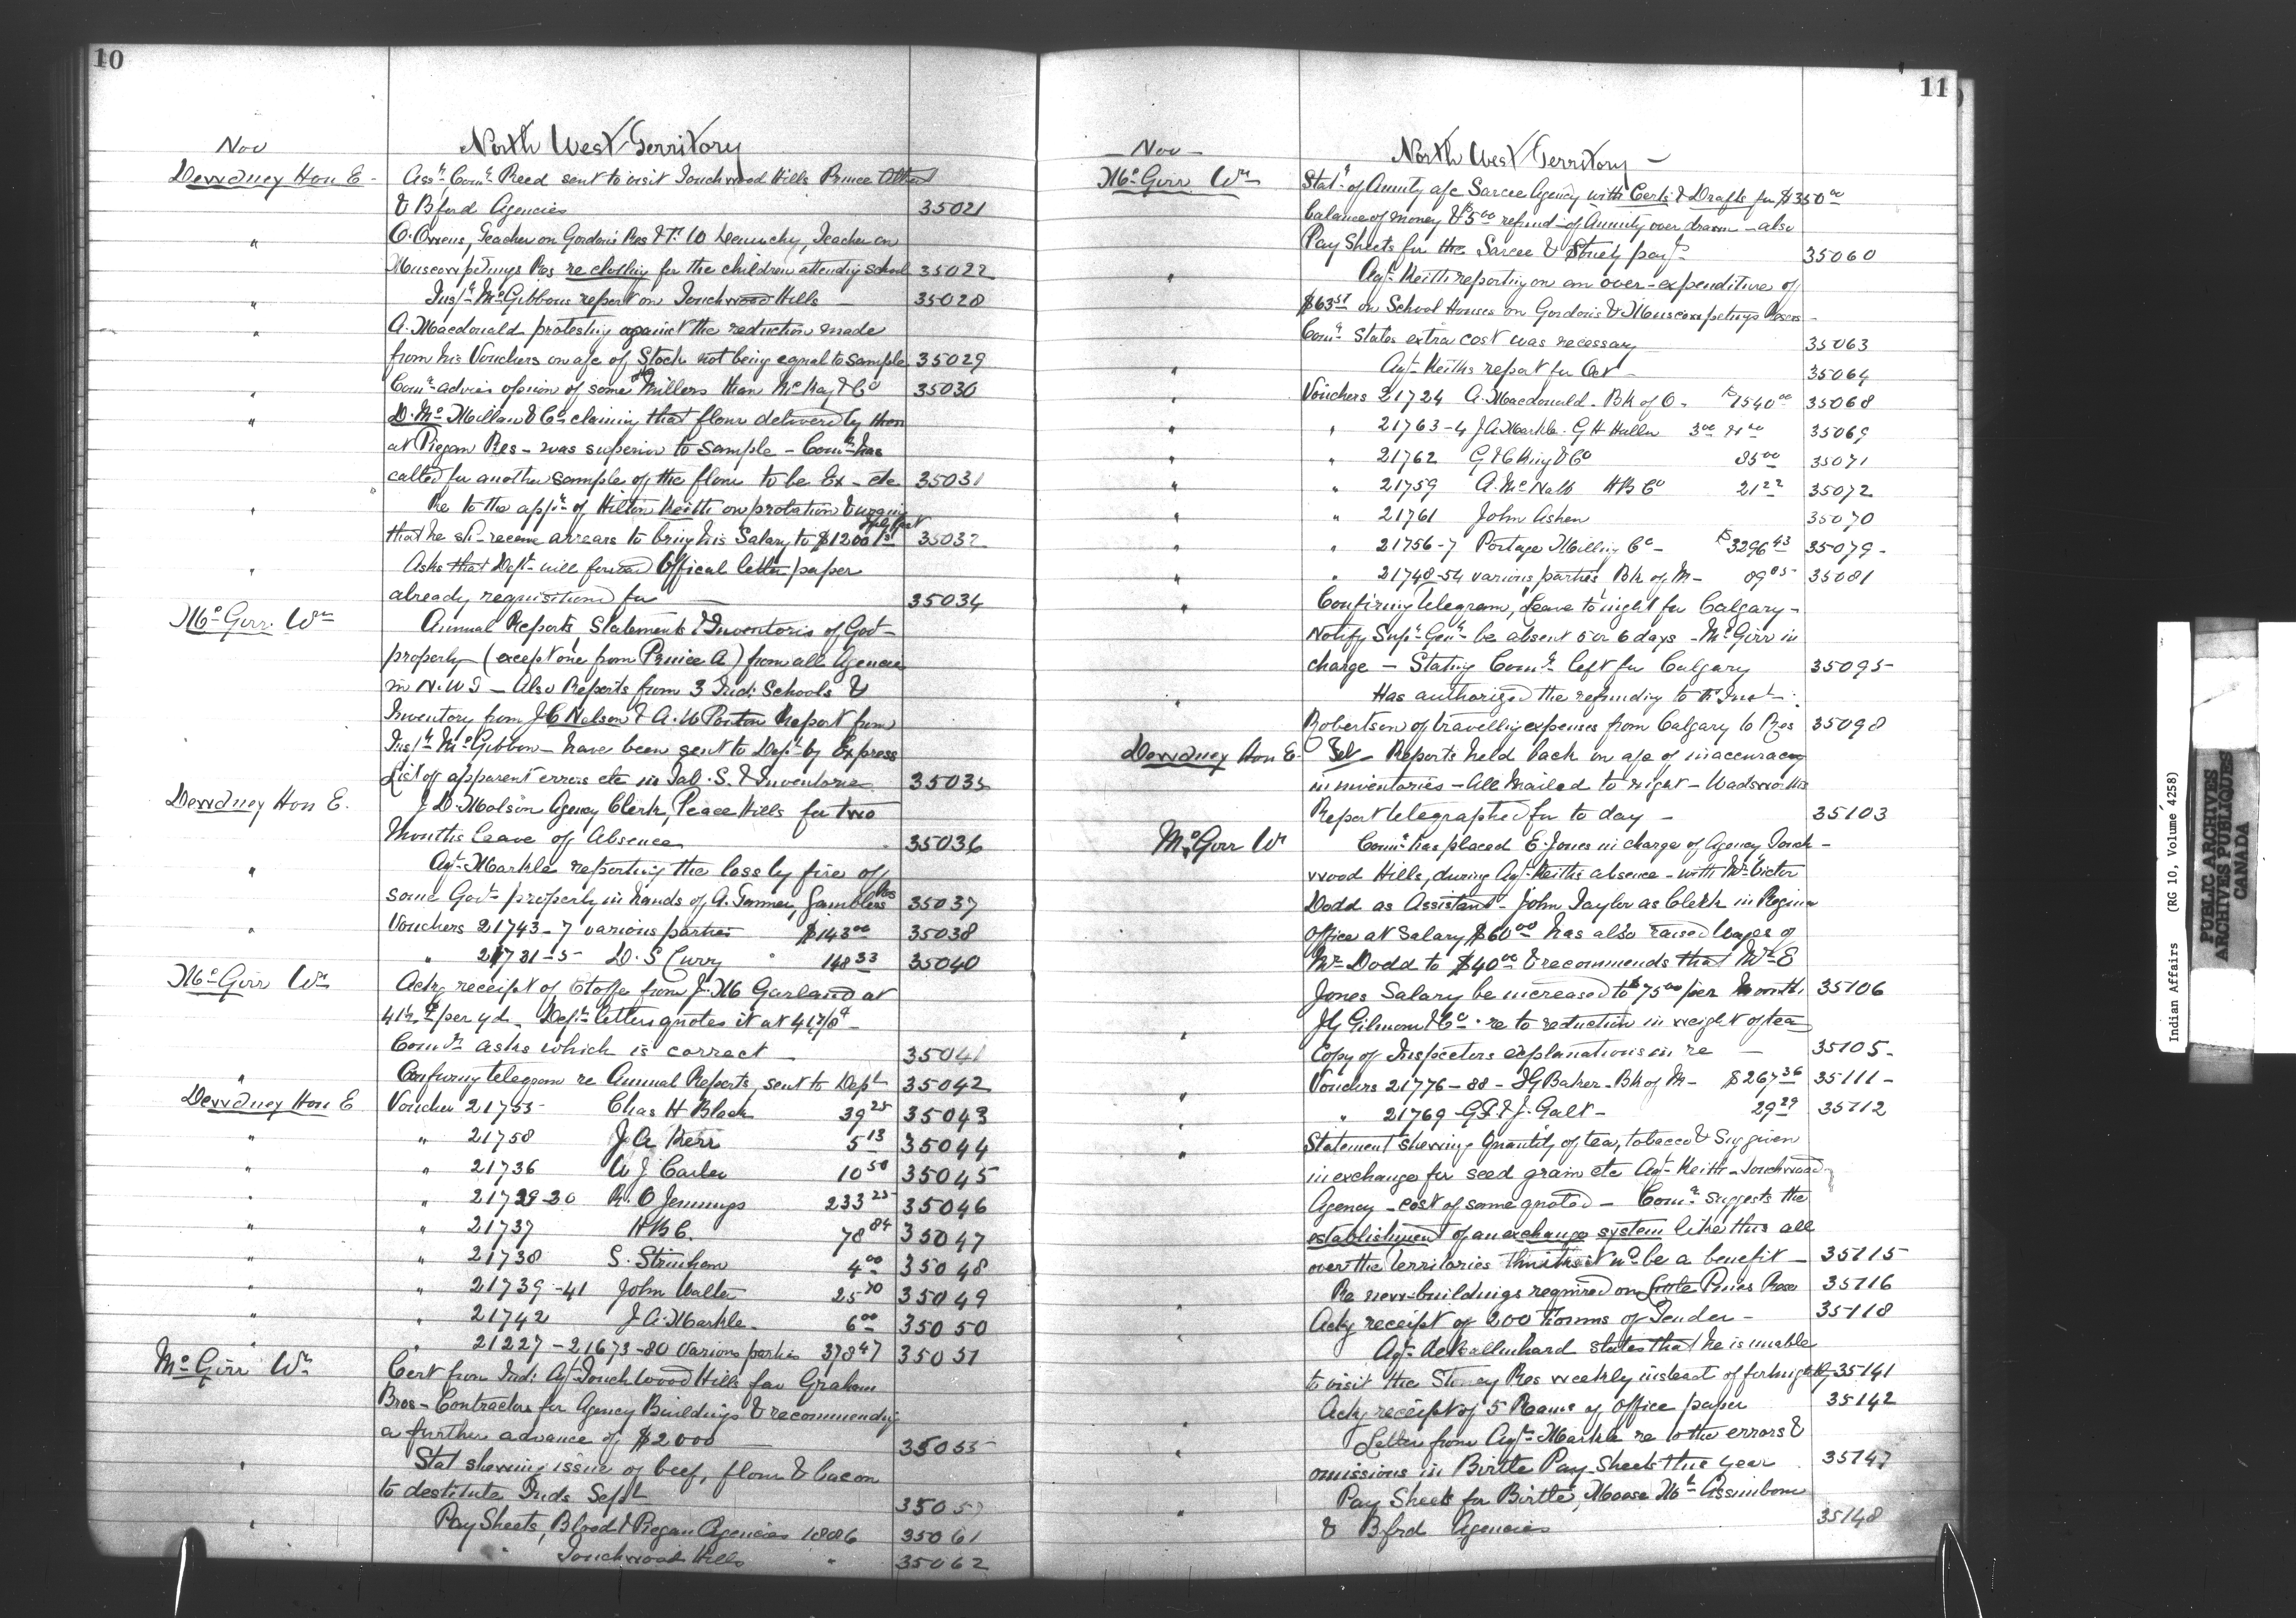 10
Nov
North West Territory
Dewdney Hon E - Assn Comr Reed sent to visit Touchwood Hills Prince Albert
& Bford Agencies 35021
" O. Owens, Teacher on Gordon's Res & T. W Teacher on
Muscowpetungs Res re clothing for the children attending school 35022
" Inspr McGibbons report on Touchwood Hills — 35028
" A. Macdonald protesting against the reduction made
from his Vouchers on a/c of Stock not being equal to sample 35029
" Comr advises opinion of some Millers than McKay & Co 35030
" D. McMillan & Co claiming that flour delivered by them
at Piegan Res - was superior to sample - Comr has
called for another sample of the flour to be Ex - etc 35031
" Re to the appt of Hilton Keith on probation & urging
that he sh- receive arrears to bring his Salary to $1200 1st Sept 35032
" Asks that Dept will forward Offical letter paper
already requisitioned for — 35034
McGirr. Wm Annual Reports, Statements & Inventoris of Govt
property (except one from Prince A) from all Agencies
in N.W.T — Also Reports from 3 Ind: Schools &
Inventory from J C Nelson & A. W Ponton Report from
Inspr McGibbon - have been sent to Dept by Express
List of apparent errors etc in Tab. S. & Inventories 35035
Dewdney Hon E. J. D. Molson Agency Clerk, Peace Hills for two
Months leave of Absence 35036
" Agt Markle reporting the loss by fire of
some Govt property in hands of A. Tanner, Gamblers Res 35037
" Vouchers 21743-7 various parties $143.00 35038
" 21731-5 D. S Curry " 148 33 35040
McGirr Wm Ackg receipt of Etoffe from J. M Garland at
41½ per yd - Depts letters quotes it at 41 7/8 -
Comr asks which is correct — 35041
" Confirmg telegram re Annual Reports, sent to Dept 35042
Dewdney Hon E Voucher 21755 Chas H Black 39 25 35043
" " 21758 J. A. Kerr 5 13 35044
" " 21736 W J Carter 10 50 35045
" " 21729-30 R. O Jennings 233 25 35046
" " 21737 H B C. 78 84 35047
" " 21738 S. Strinham 4 00 35048
" " 21739-41 John Walter 25 70 35049
" " 21742 J. A. Markle 6 00 35050
" " 21227-21673-80 Various parties 378 47 35051
McGirr Wm Cert from Ind: Agt Touchwood Hills fav Graham
Bros - Contractors for Agency Buildings & recommending
a further advance of $2000 — 35055
" Stat shewing issue of beef, flour & bacon
to destitute Inds Sept 35057
" Pay Sheets, Blood & Piegan Agencies 1886 35061
" Touchwood Hills " 35062
11
Nov —
North West Territory —
McGirr Wm Statt of Annuity a/c Sarcee Agency with Certs & Drafts for $350 00
balance of money & $5 00 refund of Annuity over drawn - also
Pay Sheets for the Sarcee & Stoney payt 35060
" Agt Keith reporting on an over-expenditure of
$63 51 on School Houses on Gordon's & Muscowpetungs Reses -
Comr States extra cost was necessary 35063
" Agt Keiths report for Oct — 35064
" Vouchers 21724 A. Macdonald. Bk of O - $1540 00 35068
" " 21763-4 J. A. Markle. G H 35069
" " 21762 G & C King & Co 85 00 35071
" " 21759 A. McNabb H B Co 21 22 35072
" " 21761 John Ashen 35070
" " 21756-7 Portage Milling Co - $3296 43 35079 -
" " 21748-54 various parties Bk of M - 89 85 35081
" Confirming telegram, leave to night for Calgary -
Notify Supt Genl be absent 5 or 6 days - McGirr in
charge — Stating Comr left for Calgary 35095
" Has authorized the refunding to
Robertson of travelling expenses from Calgary to Res 35098
Dewdney Hon E - Tel - Reports held back on a/c of inaccuracy
in inventories - All mailed to night - Wadsworths
Report telegraphed for to day — 35103
McGirr Wm Comr has placed E. Jones in charge of Agency Touch -
wood Hills, during Agt Keiths absence - with Mr Victor
Dodd as Assistant - John Taylor as Clerk in Regina
office at Salary $60 00 has also raised Wages of
Mr Dodd to $40 00 & recommends that Mr E
Jones Salary be increased to $75 00 per Month 35106
" J G Gilmour & Co - re to reduction in weight of tea
Copy of Inspectors explanations in re — 35105 -
" Vouchers 21776-88 - I G Baker - Bk of M - $267 36 35111 -
" " 21769 - G. F. & J. Galt - 29 29 35112
" Statement shewing Quantity of tea, tobacco & Sug given
in exchange for seed grain etc Agt Keith - Touchwood
Agency - cost of same quoted — Comr suggests the
establishment of an exchange system like this all
over the territories thinks it wd be a benefit — 35115
" Re new-buildings required on Little Pines Res 35116
" Ackg receipt of 200 Forms of Tender — 35118
" Agt states that he is unable
to visit the Stoney Res weekly instead of fortnightly 35141
" Ackg receipt of 5 Reams of Office paper 35142
" Letter from Agt Markle re to the errors &
omissions in Birtle Pay-Sheets this year 35147
" Pay Sheets for Birtle, Moose Mtn Assiniboine
& Bford Agencies 35148
Indian Affairs (RG 10, Volume 4258)
PUBLIC ARCHIVES
ARCHIVES PUBLIQUES
CANADA